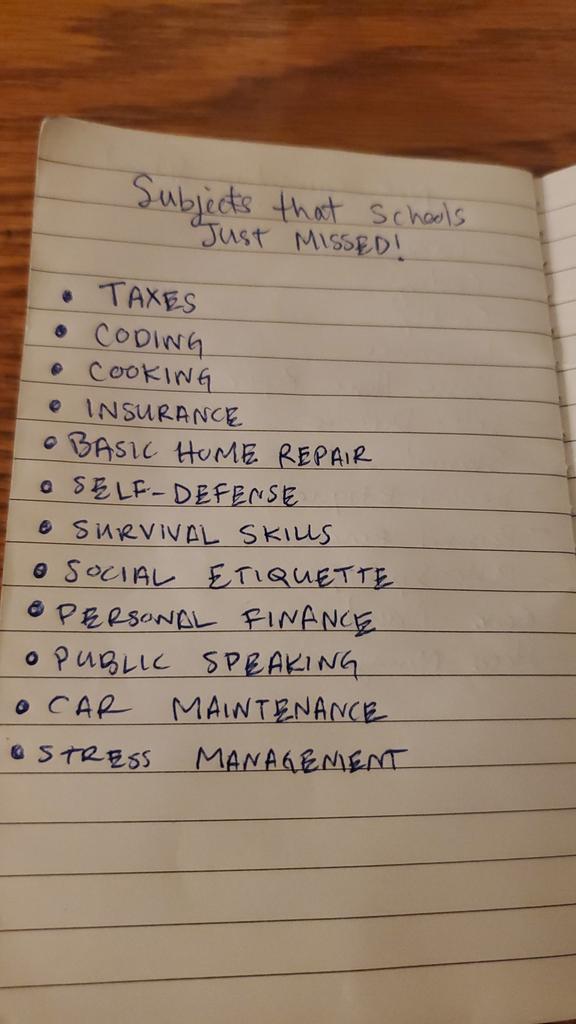 Subjects that schools
Just MISSED!
• TAXES
• CODING
• COOKING
• INSURANCE
• BASIC HOME REPAIR
• SELF-DEFENSE
• SURVIVAL SKILLS
• SOCIAL ETIQUETTE
• PERSONAL FINANCE
• PUBLIC SPEAKING
• CAR MAINTENANCE
• STRESS MANAGEMENT